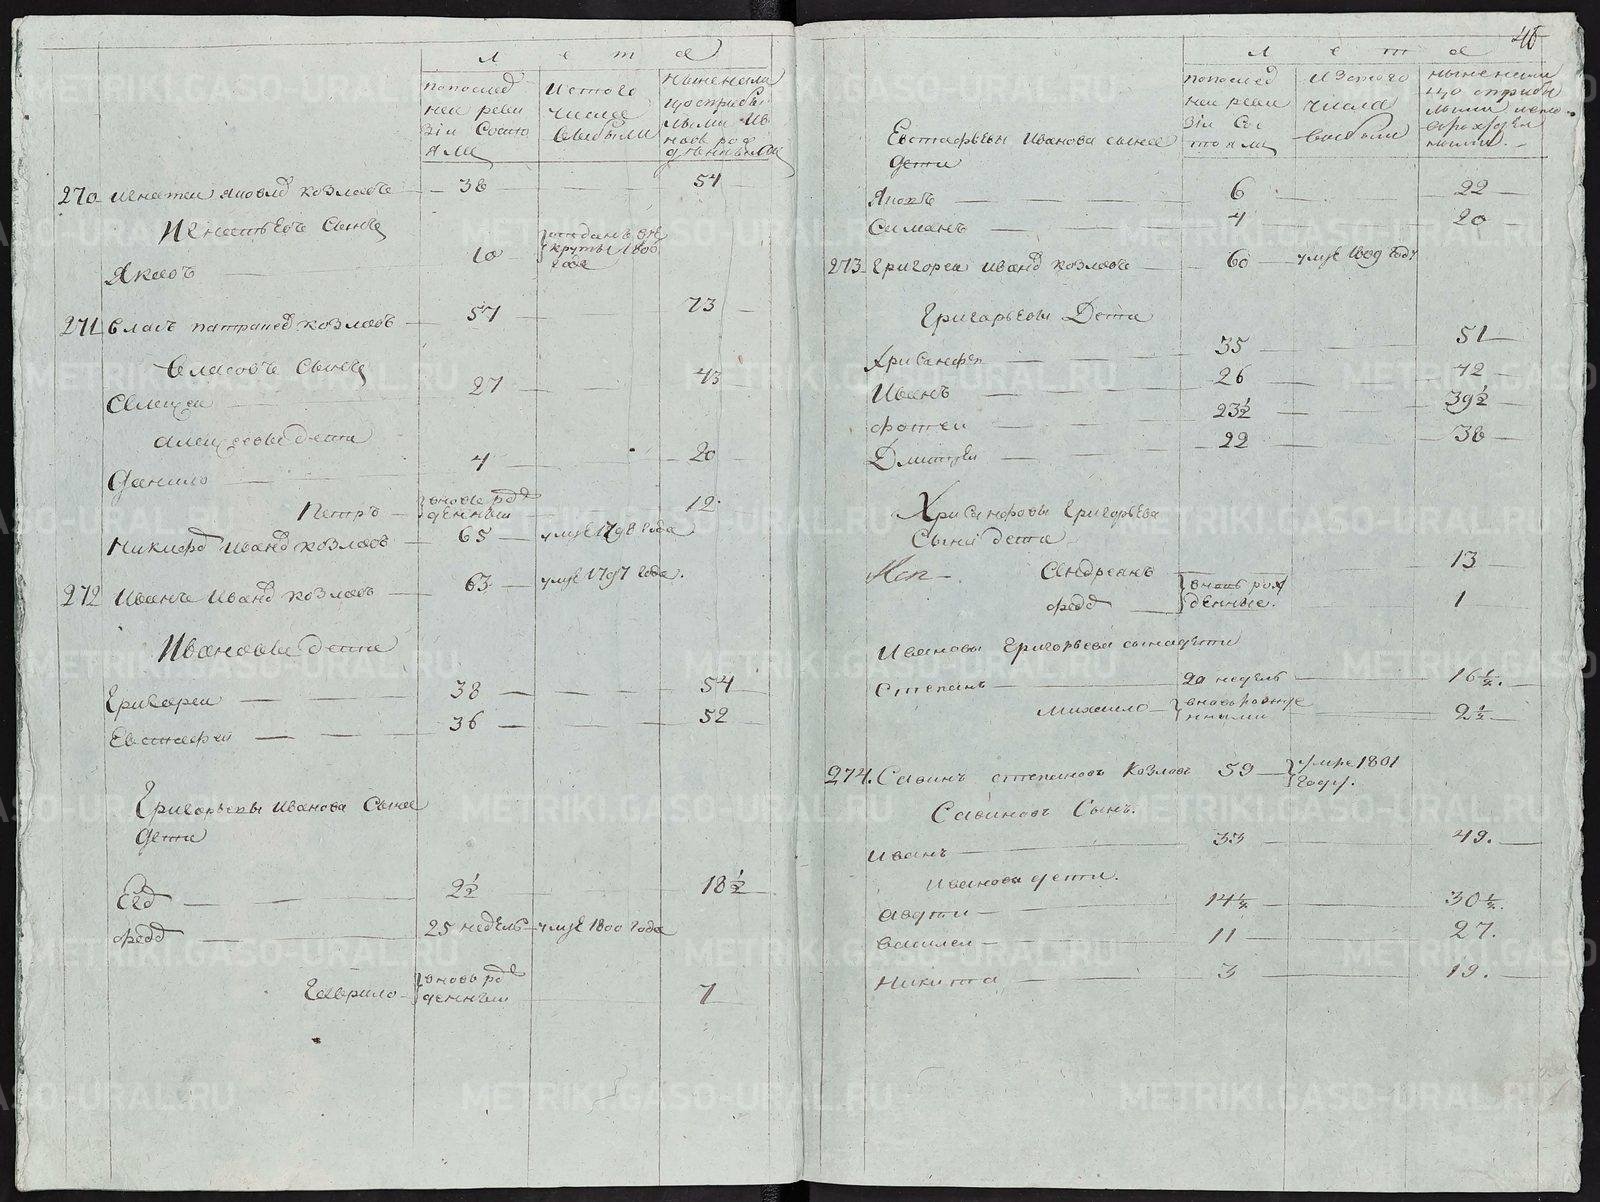 Л е т а
попослед
ней реви
зіи Состо
яли
Истого
числа
выбыли
270 игнатеи яковлев козловъ — 38 — 54
Игнатьевъ Сынъ
Яковъ — 10
отданъ в ре
круты 1806
года
271 власъ патрапиев козловъ — 57 — 73
Власовъ Сынъ
27 — 43
дети
Данило — 4 — 20
Петръ
вновь рож
денныи
12
Никифор Иванов козловъ — 65 — умре 1798 года
272 Иванъ Иванов козловъ — 63 — умре 1797 года.
Ивановы дети
Григореи — 38 — 54
Евстафей — 36 — 52
Григорьевы Иванова Сына
дети
2½ — 18½
федор — 25 недель — умре 1800 года
Гаврило
вновь рож
денныи
7
46
Л е т а
попослед
ней реви
зіи Сос
тояли
Изтого
числа
выбыли
Евстафьевы Иванова сына
дети
Яковъ — 6 — 22
Симанъ — 4 — 20
273 Григореи Иванов козловъ — 60 — умре 1809 году
Григорьевы Дети
Хрисанфъ — 35 — 51
Иванъ — 26 — 42
фотеи — 23½ — 39½
Дмитреи — 22 — 38
Хрисанфовы Григорьева
Сына дети
Андреянъ — 13
федор — 1
вновь рож
денные.
Ивановы Григорьева сына дети
Степанъ — 20 недель — 16½.
михаило
вновь рожде
нныи
2½
274. Савинъ степановъ Козловъ 59
умре 1801
году.
Савиновъ Сынъ.
Иванъ — 33 — 49.
Ивановы дети.
14½ — 30½.
василеи — 11 — 27.
Никита — 3 — 19.
METRIKI.GASO-URAL.RU